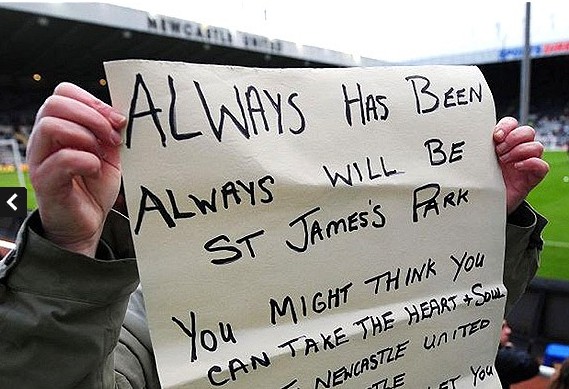 NEWCASTLE UNITED
SPORTS
ALWAYS HAS BEEN
ALWAYS WILL BE
ST JAMES'S PARK
YOU MIGHT THINK YOU
CAN TAKE THE HEART + SOUL
NEWCASTLE UNITED
YOU